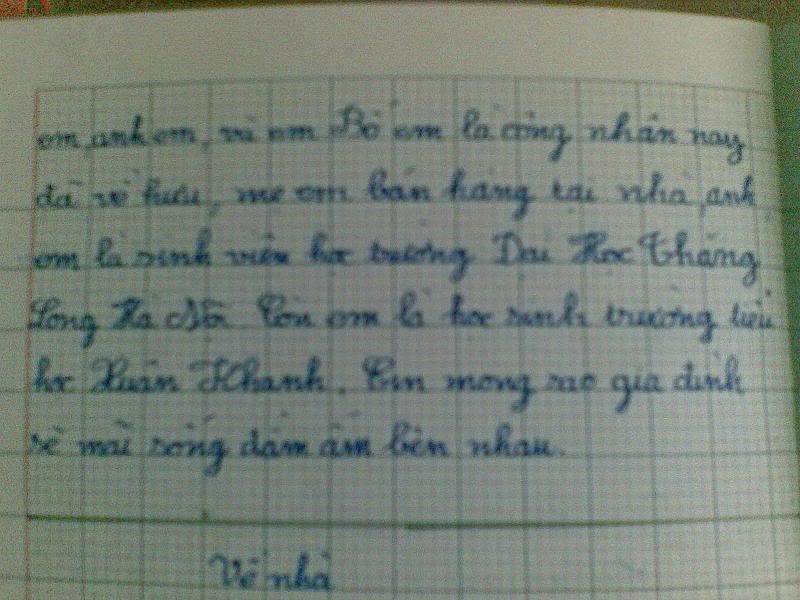 em, anh em, và em. Bố em là công nhân nay
đã về hưu, mẹ em bán hàng tại nhà, anh
em là sinh viên học trường Đại Học Thăng
Long Hà Nội. Còn em là học sinh trường tiểu
học Xuân Khanh. Em mong sao gia đình
sẽ mãi sống đầm ấm bên nhau.
Về nhà